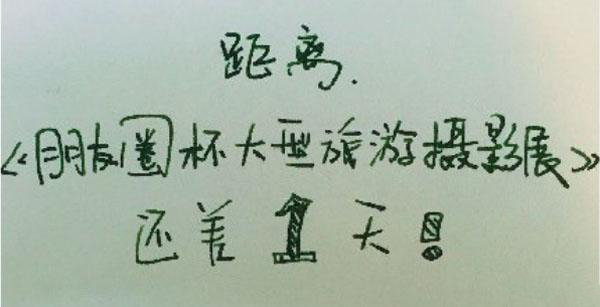 距离.
《朋友圈杯大型旅游摄影展》
还差1天!